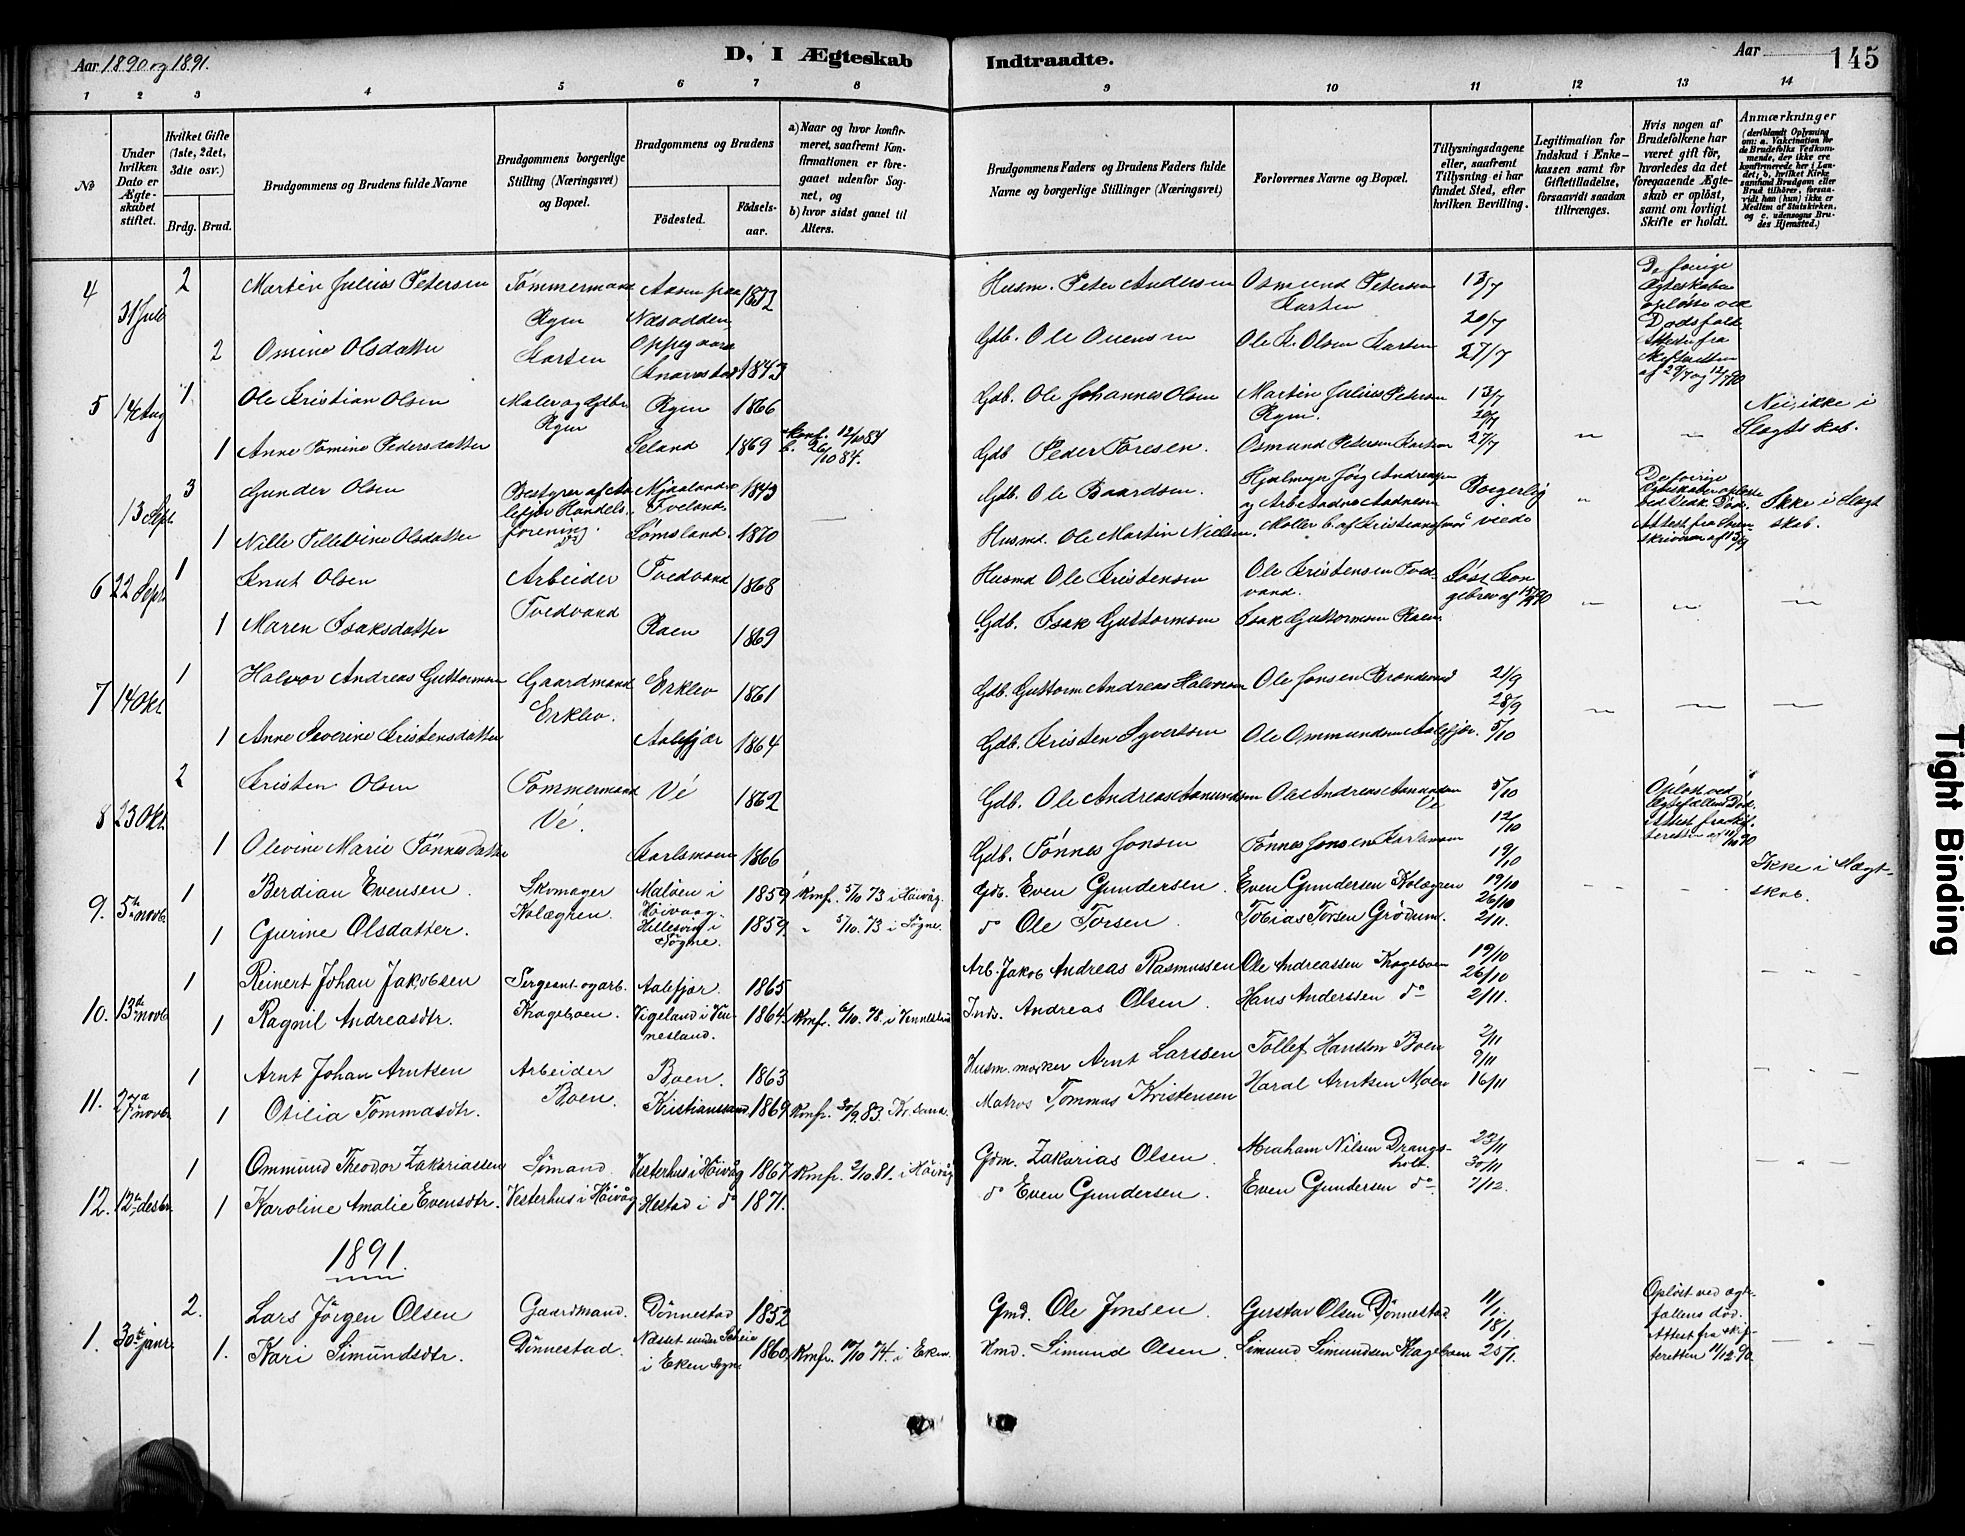 Aar 1890 og 1891.
D, I Ægteskab Indtraadte.
Aar
145
1 2 3 4 5 6 7 8 9 10 11 12 13 14
No
Under hvilken Dato er Ægteskabet stiftet.
Hvilket Gifte (1ste, 2det, 3die osv.)
Brdg. Brud.
Brudgommens og Brudens fulde Navne
Brudgommens borgerlige Stilling (Næringsvei) og Bopæl.
Brudgommens og Brudens
Födested.
Födselsaar.
a) Naar og hvor konfirmeret, saafremt Konfirmationen er foregaaet udenfor Sognet, og
b) hvor sidst gaaet til Alters.
Brudgommens Faders og Brudens Faders fulde Navne og borgerlige Stillinger (Næringsvei)
Forlovernes Navne og Bopæl.
Tillysningsdagene eller, saafremt Tillysning ei har fundet Sted, efter hvilken Bevilling.
Legitimation for Indskud i Enkekassen samt for Giftetilladelse, forsaavidt saadan tiltrænges.
Hvis nogen af Brudefolkene har været gift för, hvorledes da det foregaaende Ægteskab er oplöst, samt om lovligt Skifte er holdt.
Anmærkninger
(deriblandt Oplysning om: a. Vaccination for de Brudefolks Vedkommende, der ikke ere konfirmerede her i Landet; b, hvilket Kirkesamfund Brudgom eller Brud tilhörer, forsaavidt han (hun) ikke er Medlem af Statskirken, og c. udensogns Brudes Hjemsted.)
4 31 Juli 2 Martin Julius Petersen Tømmermand Rygen Aasen paa Næsodden 1832 Husm. Peter Andersen Osmund Petersen 13/7
2 Omine Olsdatter Oppegaard 1843 Gdb. Ole Ole K. Olsen 20/7 27/7
De forrige Ægteskaber opløste ved Dødsfald
5 14 Aug 1 Ole Kristian Olsen Maler og Gdbr. Rygen Rygen 1866 Gdb. Ole Johannes Olsen Martin Julius Petersen Rygen. 13/7 20/7
Nei, ikke i Slægtskab.
1 Anne Tomine Pedersdatter Seland 1869 Konf. 12/10 84 b. 26/10 84. Gdb Peder Toresen. Osmund Petersen 27/7
13 Sept 3 Gunder Olsen Bestyrer af Aalefjær Handelsforening 1843 Gdb. Ole Baardsen. Borgerlig viede
Ikke i Slægtskab.
1 Nille Tellevine Olsdatter Lømsland. 1870 Husmd. Ole Martin Nielsen.
6 22 Sept 1 Knut Olsen Arbeider Tvedvand Tvedvand 1868 Husmd Ole Kristensen Ole Kristensen Tvedvand.
1 Maren Isaksdatter Raen 1869 Gdb. Isak Guttormsen Isak Guttormsen Raen
7 14 Okt 1 Halvor Andreas Guttormsen Gaardmand Erklev. Erklev 1861 Gdb. Guttorm Andreas Halvorsen Ole Jonsen 21/9 28/9
1 Anne Severine Kristensdatter Aalefjær 1864 Gdb. Kristen Syvertsen Ole Ommundsen Aalefjær. 5/10
8 23 Okt 2 Kristen Olsen Tømmermand Vé. Vé 1862 Gdb. Ole Andreas Aanundsen Ole Andreas Aanundsen Ve 5/10 12/10
Opløst ved Ægtefællens Død.
1 Olevine Marie Tønnesdatter Karlsmoen 1866 Gdb. Tønnes Jonsen Tønnes Jonsen Karlsmoen 19/10
9. 5te novb. 1 Berdian Evensen. Skomager Kolægren. Maløen i Høivaag. 1859 Konf. 5/10 73 i Høivåg. Gdb. Even Gundersen. Even Gundersen Kolægren 19/10 26/10
Ikke i Slægtskab.
1 Gurine Olsdatter. i Søgne. 1859. " 5/10. 73 i Søgne. do Ole Torsen Tobias Torsen Grødum. 2/11.
10. 13de novb. 1 Reinert Johan Jakobsen Sergeant og arb. Krageboen. Aalefjær. 1865 Arb. Jakob Andreas Rasmussen Ole Andreassen Krageboen 19/10 26/10
1 Ragnil Andreasdtr. Vigeland i Vennesland. 1864. Konf. 6/10. 78. i Vennesland Inds. Andreas Olsen. Hans Anderssen do 2/11.
11. 27de novb. 1 Arnt Johan Arntsen Arbeider Boen. Boen. 1863 Husm. Arnt Larssen Tollef Hanssen Boen 2/11 9/11
1 Otilia Tommasdtr. Kristianssand 1869 Konf. 30/9. 83. Kr. sand. Matros Tommas Kristensen Haral Arntsen Moen 16/11
1 Ommund Theodor Zakariassen Sømand. Vesterhus i Høivåg 1867. Konf. 2/10. 81. i Høivåg Gdm. Zakarias Olsen. Abraham Nilsen Drangsholt. 23/11 30/11
12. 12te desbr. 1 Karoline Amalie Evensdtr. Vesterhus i Høivåg Hestad i do 1871. do Even Gundersen. Even Gundersen do 7/12.
1891.
1. 30te janr. 2. Lars Jörgen Olsen Gaardmand. Dönnestad 1852 Gmd. Ole Jonsen. Gerstav Olsen Dönnestad 11/1. 18/1.
Opløst ved ægtefællens død. Attest fra skifteretten 11/12 90.
1. Kari Simundsdtr. Dönnestad. Næsset under i Eken sogn 1860. Konf. 10/10 74. i Eken. Hmd. Simund Olsen. Simund Simundsen Krageboen 25/1.
Tight Binding